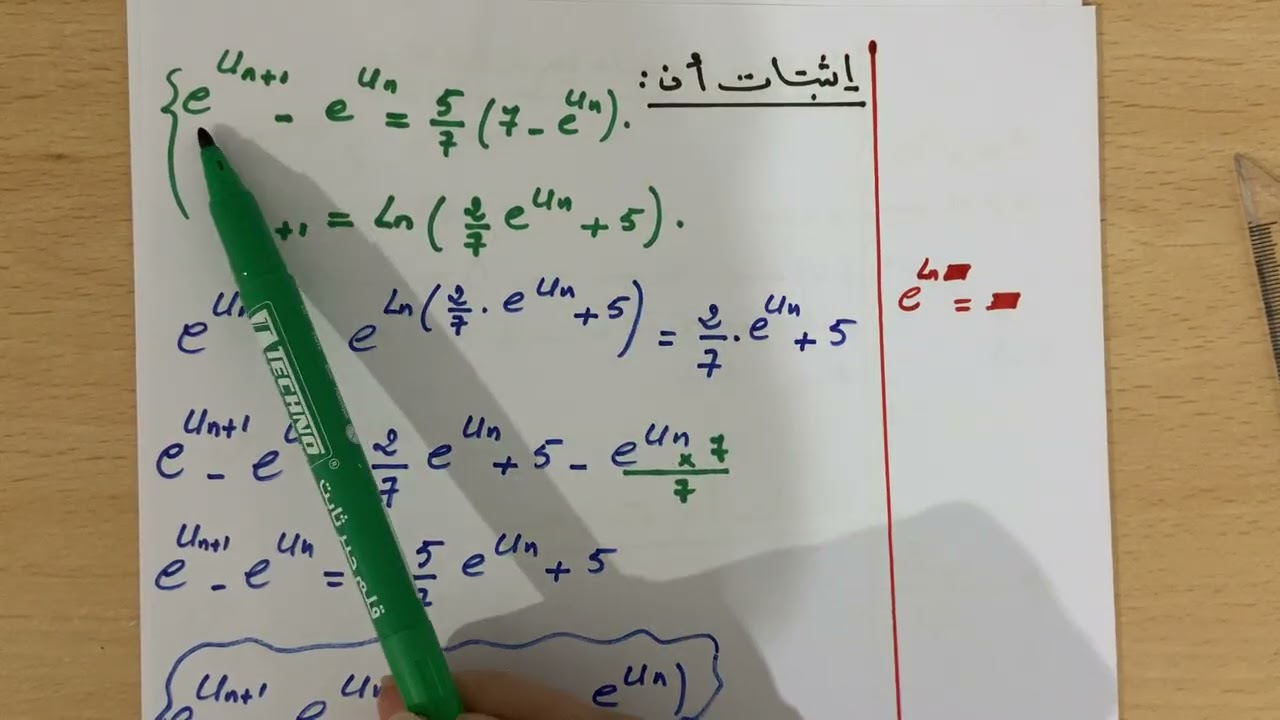 إثبات أن:
e^{Un+1} - e^{Un} = 5/7 (7 - e^{Un}).
+1 = Ln(2/7 e^{Un} + 5).
e^{Un e^{Ln(2/7 . e^{Un} + 5)} = 2/7 . e^{Un} + 5
e^{Un+1} - e 2/7 e^{Un} + 5 - e^{Un} × 7 / 7
e^{Un+1} - e^{Un} = 5/7 e^{Un} + 5
e^{Un+1} e^{Un e^{Un})
e^{Ln ■} = ■
TECHNO®
قلم حبر ثابت